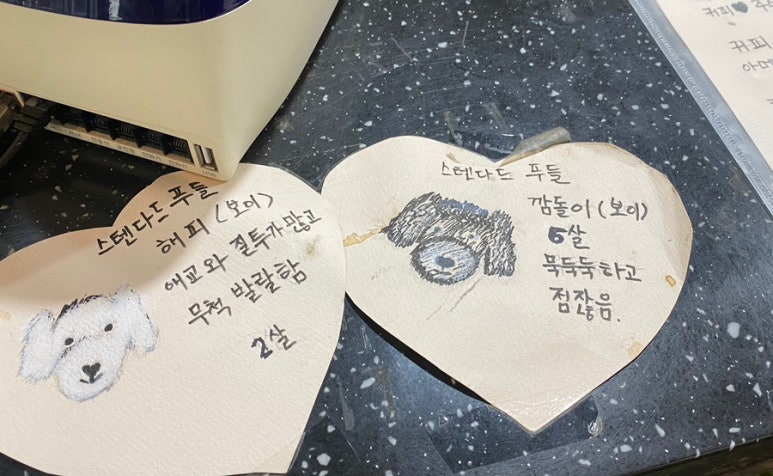 스텐다드 푸들
해피 (보이)
애교와 질투가 많고
무척 발랄함
2살
스텐다드 푸들
깜돌이 (보이)
6살
묵둑둑하고
점잖음.
커피
커피
USB